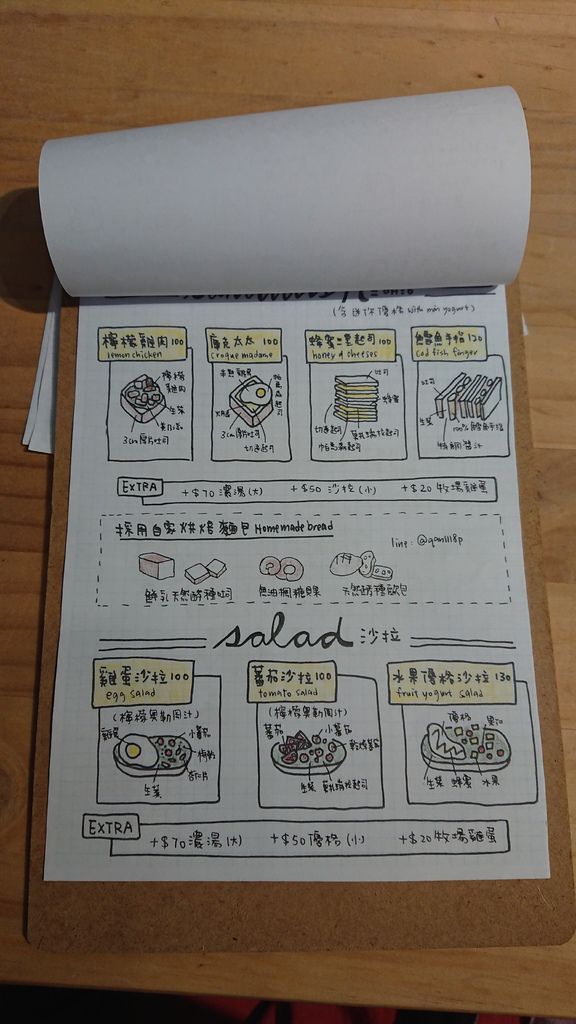 (含迷你優格 with mini yogurt)
檸檬雞肉 100
lemon chicken
檸檬雞肉
生菜
3cm厚片吐司
庫克太太 100
croque madame
半熟雞蛋
火腿
3cm厚片吐司
切達起司
蜂蜜三起司 100
honey & cheeses
吐司
蜂蜜
切達起司
莫札瑞拉起司
帕馬森起司
鱈魚手指 120
cod fish finger
吐司
生菜
100% 鱈魚手指
特調醬汁
EXTRA
+$70 濃湯(大)
+$50 沙拉(小)
+$20 牧場雞蛋
採用自家烘焙麵包 Homemade bread
line: @qan1118p
鮮乳天然酵種吐司
無油楓糖貝果
天然酵種歐包
salad 沙拉
雞蛋沙拉 100
egg salad
(檸檬果勒岡汁)
雞蛋
小蕃茄
杏仁片
生菜
蕃茄沙拉 100
tomato salad
(檸檬果勒岡汁)
蕃茄
小蕃茄
生菜
莫札瑞拉起司
水果優格沙拉 130
fruit yogurt salad
優格
果茄
生菜
蜂蜜
水果
EXTRA
+$70 濃湯(大)
+$50 優格(小)
+$20 牧場雞蛋